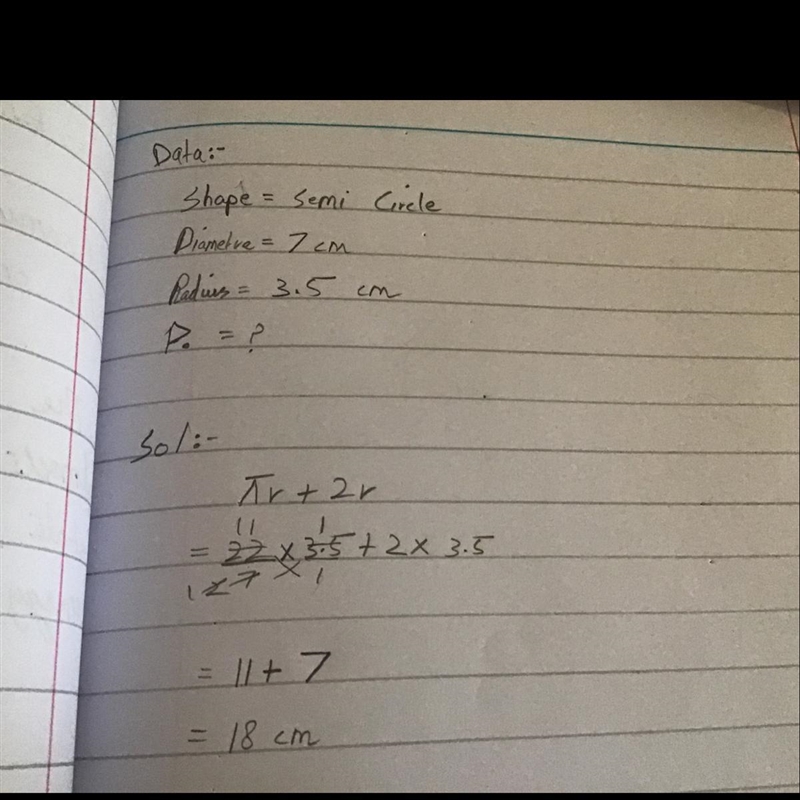 Data:-
Shape = Semi Circle
Diametre = 7 cm
Radius = 3.5 cm
P. = ?
Sol:-
πr + 2r
11 1
= 22 × 3.5 + 2 × 3.5
1 2 7 × 1
= 11 + 7
= 18 cm